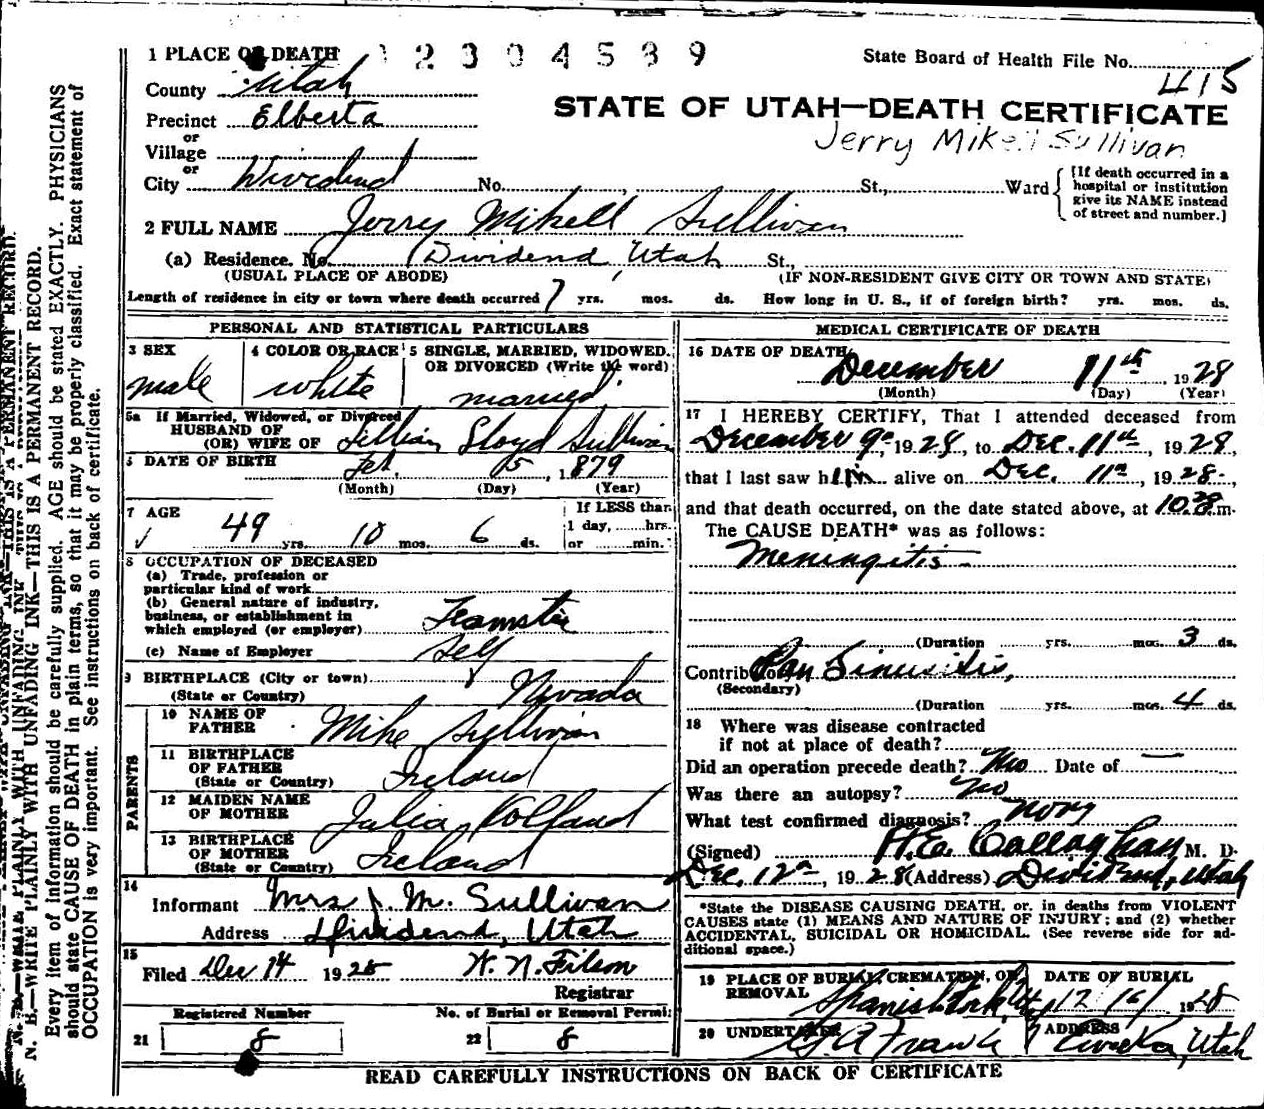 1 PLACE OF DEATH 12304589 State Board of Health File No. 415
County Utah
STATE OF UTAH—DEATH CERTIFICATE
Precinct Elberta
Jerry Mikell Sullivan
or
Village
or
City Dividend No. St., Ward [If death occurred in a hospital or institution give its NAME instead of street and number.]
2 FULL NAME Jerry Mikell Sullivan
(a) Residence. No. Dividend, Utah St.,
(USUAL PLACE OF ABODE) (IF NON-RESIDENT GIVE CITY OR TOWN AND STATE)
Length of residence in city or town where death occurred 7 yrs. mos. ds. How long in U. S., if of foreign birth? yrs. mos. ds.
PERSONAL AND STATISTICAL PARTICULARS
3 SEX
male
4 COLOR OR RACE
white
5 SINGLE, MARRIED, WIDOWED.
OR DIVORCED (Write the word)
married
5a If Married, Widowed, or Divorced
HUSBAND OF
(OR) WIFE OF Lillian Lloyd Sullivan
6 DATE OF BIRTH Feb. 5, 1879
(Month) (Day) (Year)
7 AGE
49 yrs. 10 mos. 6 ds.
If LESS than
1 day, hrs.
or min.
8 OCCUPATION OF DECEASED
(a) Trade, profession or
particular kind of work
(b) General nature of industry,
business, or establishment in
which employed (or employer) Teamster
(c) Name of Employer Self
9 BIRTHPLACE (City or town)
(State or Country) Nevada
PARENTS
10 NAME OF
FATHER Mike Sullivan
11 BIRTHPLACE
OF FATHER
(State or Country) Ireland
12 MAIDEN NAME
OF MOTHER Julia
13 BIRTHPLACE
OF MOTHER
(State or Country) Ireland
14
Informant Mrs J. M. Sullivan
Address Dividend, Utah
15
Filed Dec 14 1928
Registrar
Registered Number
21 8
No. of Burial or Removal Permit
22 8
MEDICAL CERTIFICATE OF DEATH
16 DATE OF DEATH
December 11th, 1928
(Month) (Day) (Year)
17 I HEREBY CERTIFY, That I attended deceased from
December 9, 1928, to Dec. 11th, 1928,
that I last saw him alive on Dec. 11, 1928,
and that death occurred, on the date stated above, at m.
The CAUSE DEATH* was as follows:
Meningitis
(Duration yrs. mos. 3 ds.
Contributory Pan Sinusitis,
(Secondary)
(Duration yrs. mos. 4 ds.
18 Where was disease contracted
if not at place of death?
Did an operation precede death? No Date of —
Was there an autopsy? no
What test confirmed diagnosis?
(Signed) H.E. Callaghan M. D.
Dec. 12, 1928 (Address) Dividend, Utah
*State the DISEASE CAUSING DEATH, or, in deaths from VIOLENT
CAUSES state (1) MEANS AND NATURE OF INJURY; and (2) whether
ACCIDENTAL, SUICIDAL OR HOMICIDAL. (See reverse side for ad-
ditional space.)
19 PLACE OF BURIAL, CREMATION, OR
REMOVAL Spanish Fork, Utah
DATE OF BURIAL
12/16/ 1928
20 UNDERTAKER
ADDRESS
Eureka, Utah
READ CAREFULLY INSTRUCTIONS ON BACK OF CERTIFICATE
N. B.—WRITE PLAINLY WITH UNFADING INK—THIS IS A PERMANENT RECORD.
Every item of information should be carefully supplied. AGE should be stated EXACTLY. PHYSICIANS
should state CAUSE OF DEATH in plain terms, so that it may be properly classified. Exact statement of
OCCUPATION is very important. See instructions on back of certificate.